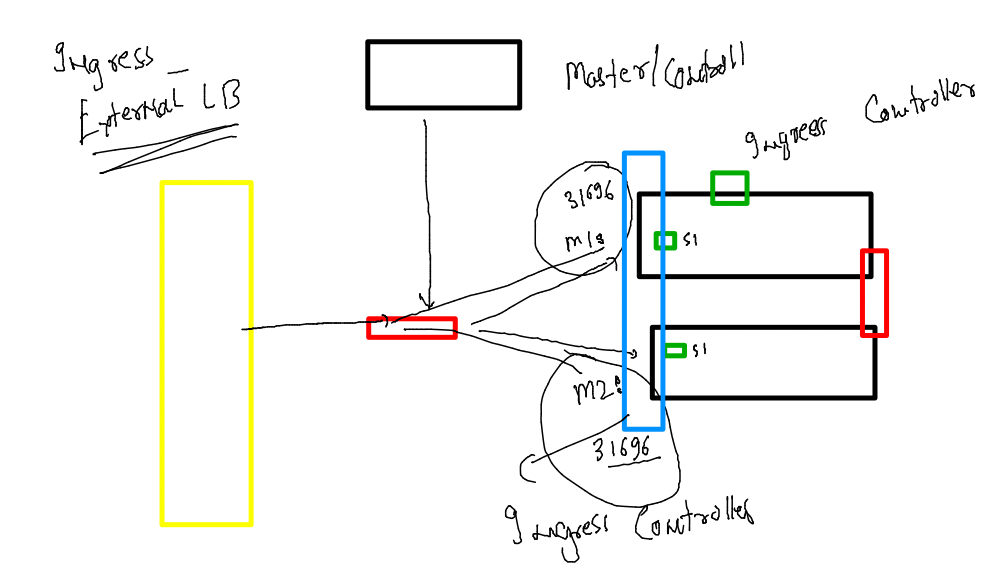 Ingress -
External LB
Master/Controll
Ingress Controller
31696
m1:
S1
S1
m2:
31696
Ingress Controller